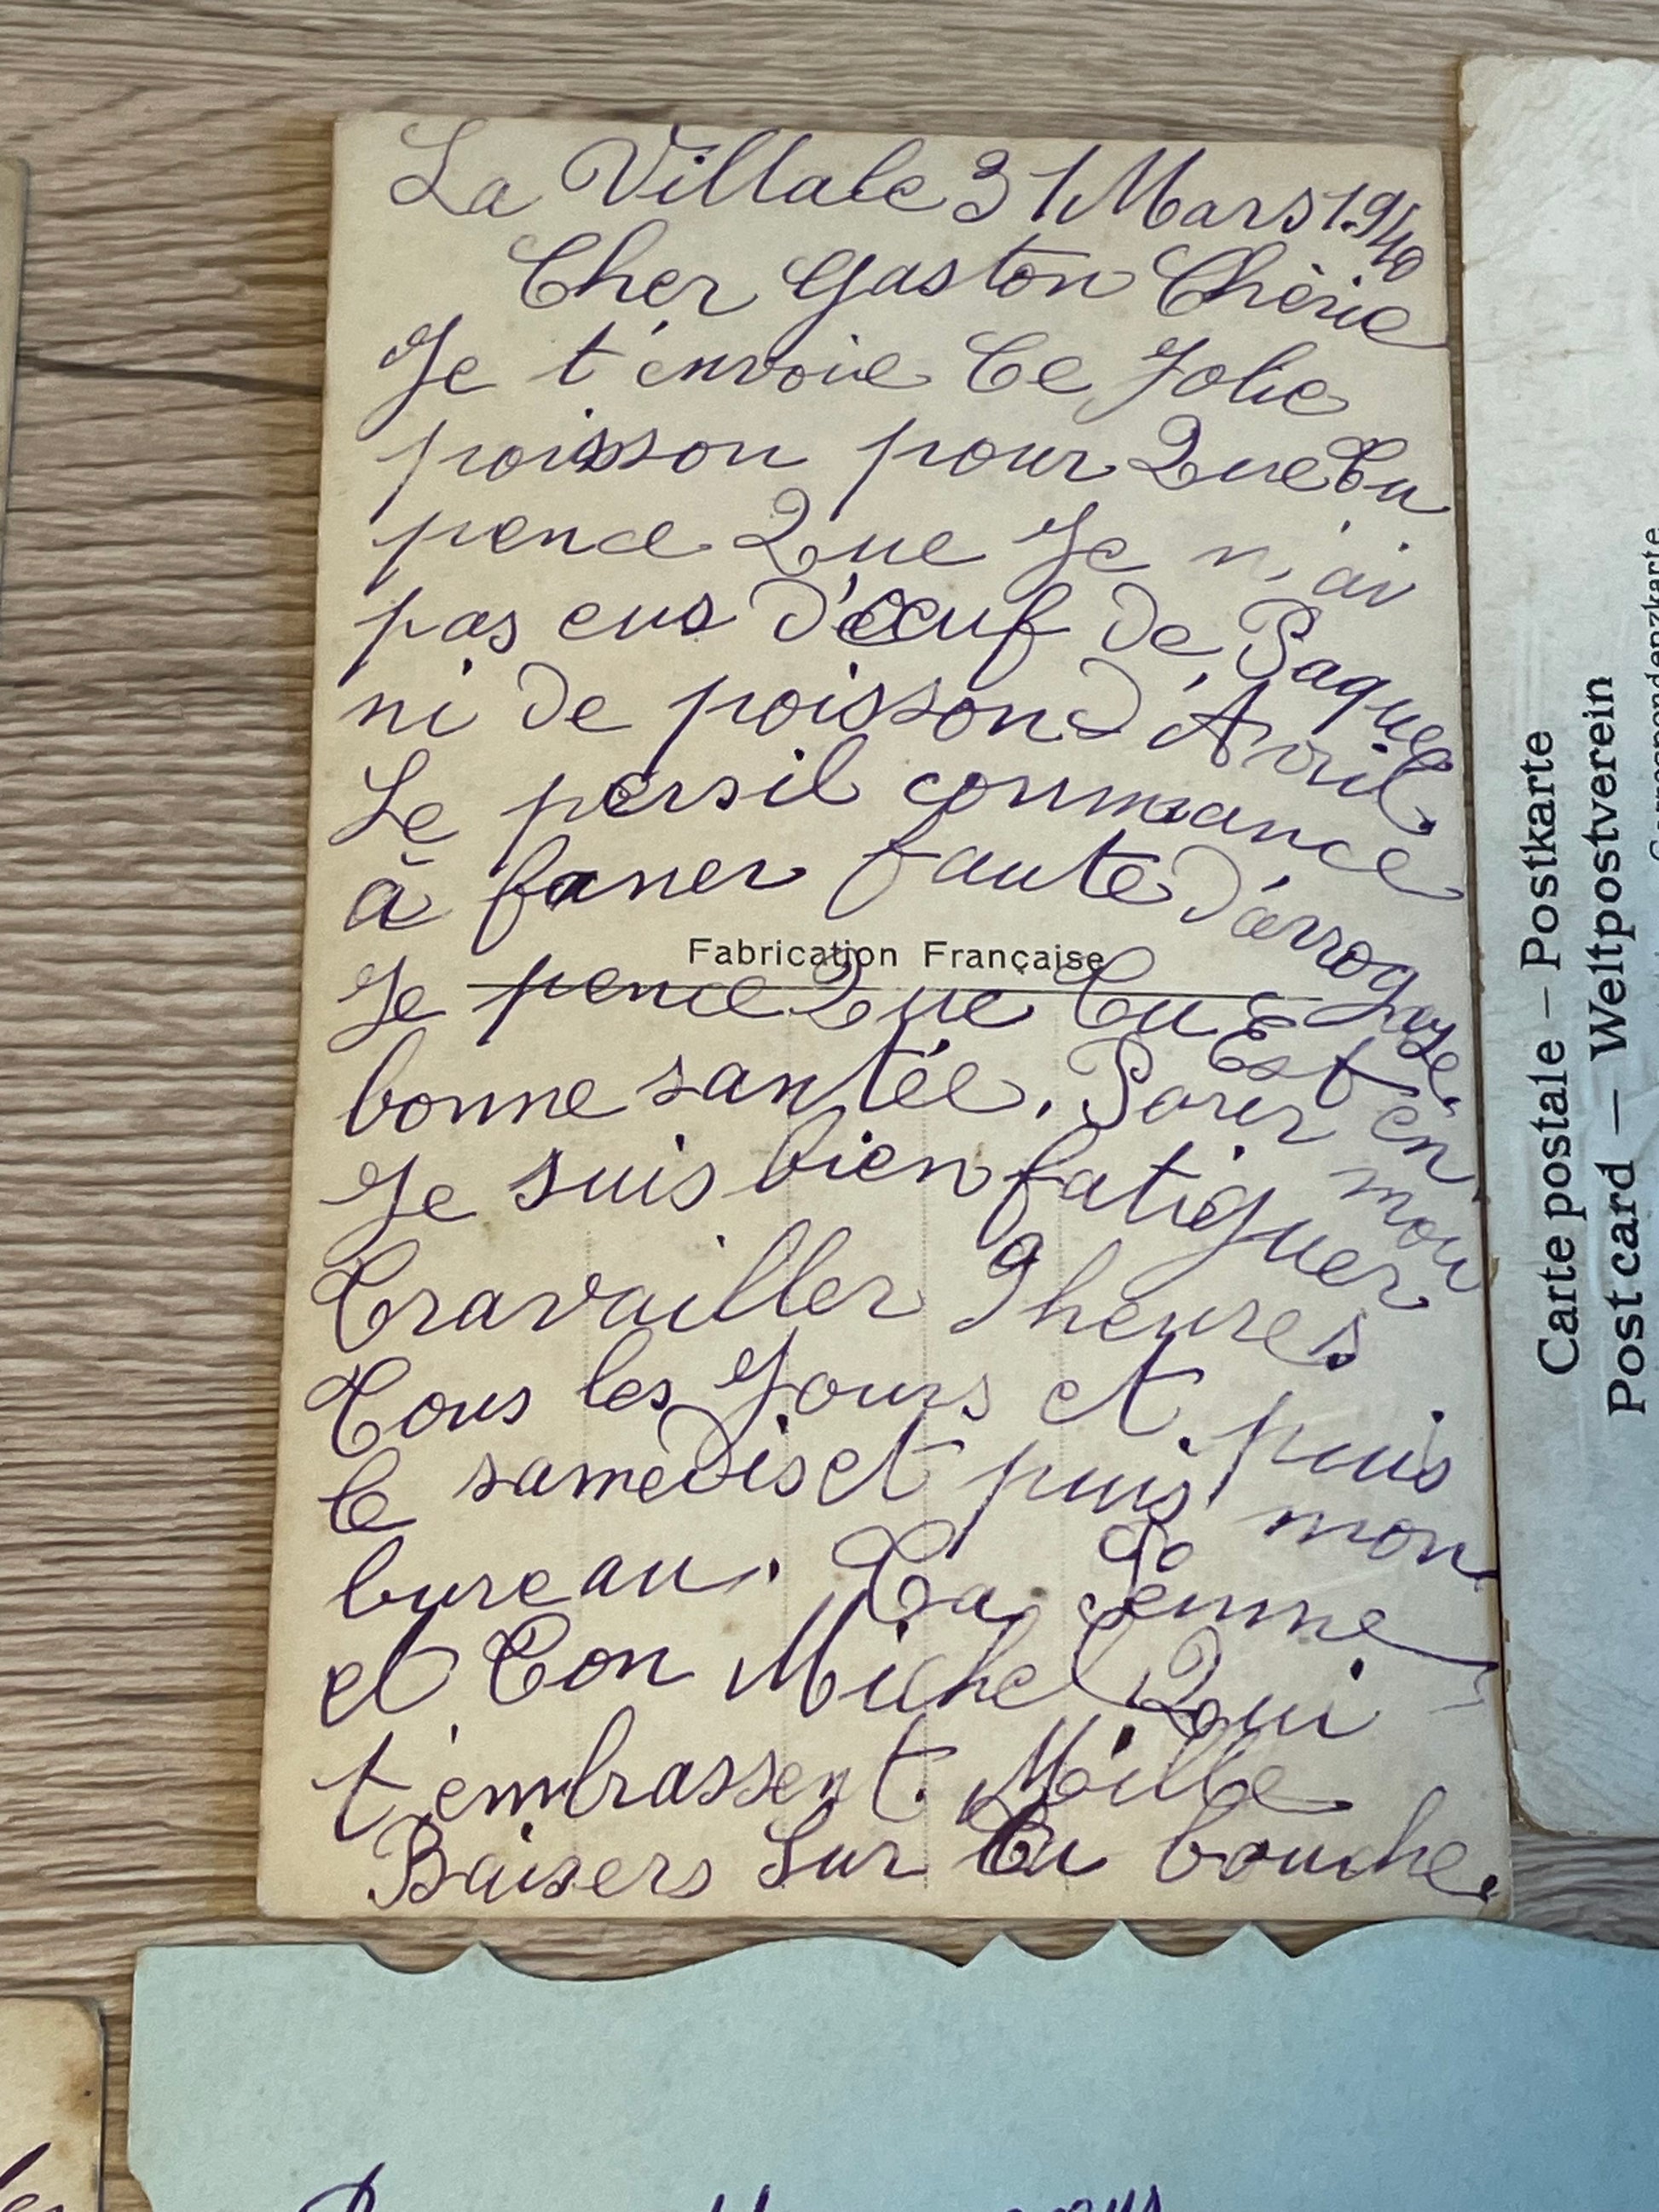 La Villale 31 Mars 1940
Cher Gaston Chèrie
Je t'envoie Ce Jolie
poisson pour Que Tu
pence Que Je n'ai
pas eus d'œuf de Paques
ni de poisson d'Avril.
Le persil commance
à faner faute d'arroghage.
Fabrication Française
Je pence Que Tu Est en
bonne santée. Pour moi
Je suis bien fatiguer
Travailler 9 heures
Tous les Jours et puis
le samedis et puis mon
bureau. Ta Femme
et Ton Michel Qui
t'embrassent. Mille
Baisers Sur Ta bouche.
Carte postale – Postkarte
Post card — Weltpostverein
Correspondenzkarte